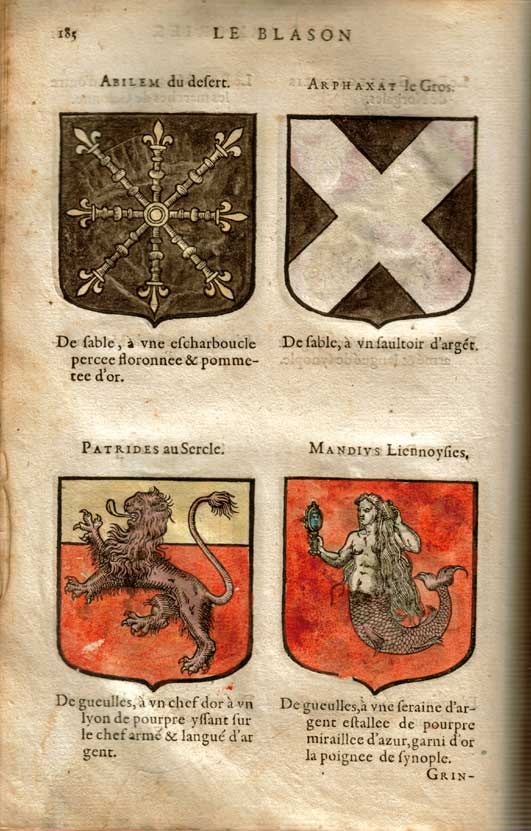 185 LE BLASON
ABILEM du desert.
De sable, à vne escharboucle
percee floronnee & pomme-
tee d'or.
ARPHAXAT le Gros.
De sable, à vn saultoir d'argét.
PATRIDES au Sercle.
De gueulles, à vn chef dor à vn
lyon de pourpre yssant sur
le chef armé & langué d'ar
gent.
MANDIVS Liennoysies,
De gueulles, à vne seraine d'ar-
gent estallee de pourpre
miraillee d'azur, garni d'or
la poignee de synople.
GRIN-